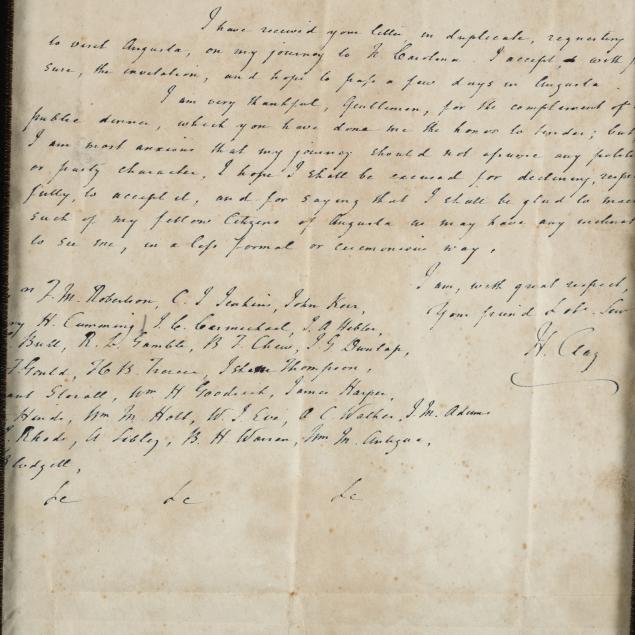 I have received your letter, in duplicate, requesting
to visit Augusta, on my journey to N Carolina. I accept, with
sure, the invitation, and hope to pass a few days in Augusta.
I am very thankful, Gentlemen, for the complement of
public dinner, which you have done me the honor to tender; but
I am most anxious that my journey should not assume any
or party character, I hope I shall be excused for declining,
fully, to accept it, and for saying that I shall be glad to
such of my fellow Citizens of Augusta as may have any
to see me, in a less formal or ceremonious way.
I am, with great respect,
Your friend & ob. Ser
H. Clay
F. M. Robertson, C. J Jenkins, John Kerr,
H. Cumming, J. C. Carmichael, J. A
Bull, R. Gamble, B. F. Chew, J G Dunlap,
Gould, Isham Thompson,
Wm H Goodrich, James Harper,
Wm M. Holt, W. J. Eve, A C Walker, J. M. Adams
A Sibley, B. H Warren, Wm. M.
&c &c &c